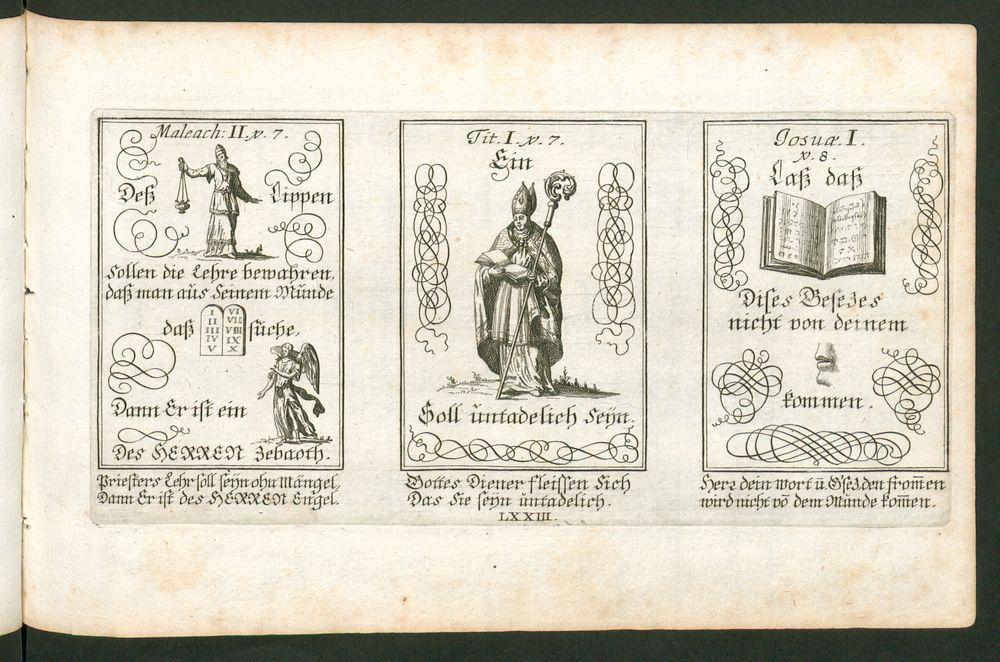 Maleach: II. v. 7.
Deß Lippen
sollen die Lehre bewahren,
daß man aus seinem Munde
daß
I
II
III
IV
V
VI
VII
VIII
IX
X
suche,
Dann Er ist ein
Des HERREN Zebaoth.
Priesters Lehr soll seyn ohn Mängel,
Dann Er ist des HERREN Engel.
Tit. I. v. 7.
Ein
Soll untadelich seyn.
Gottes Diener fleissen sich
Das Sie seyn untadelich.
LXXIII.
Josuæ I.
v. 8.
Laß daß
Dises Gesezes
nicht von deinem
kommen.
Herz dein wort ü Gsez den from̅en
wird nicht vō dem Munde kom̅en.